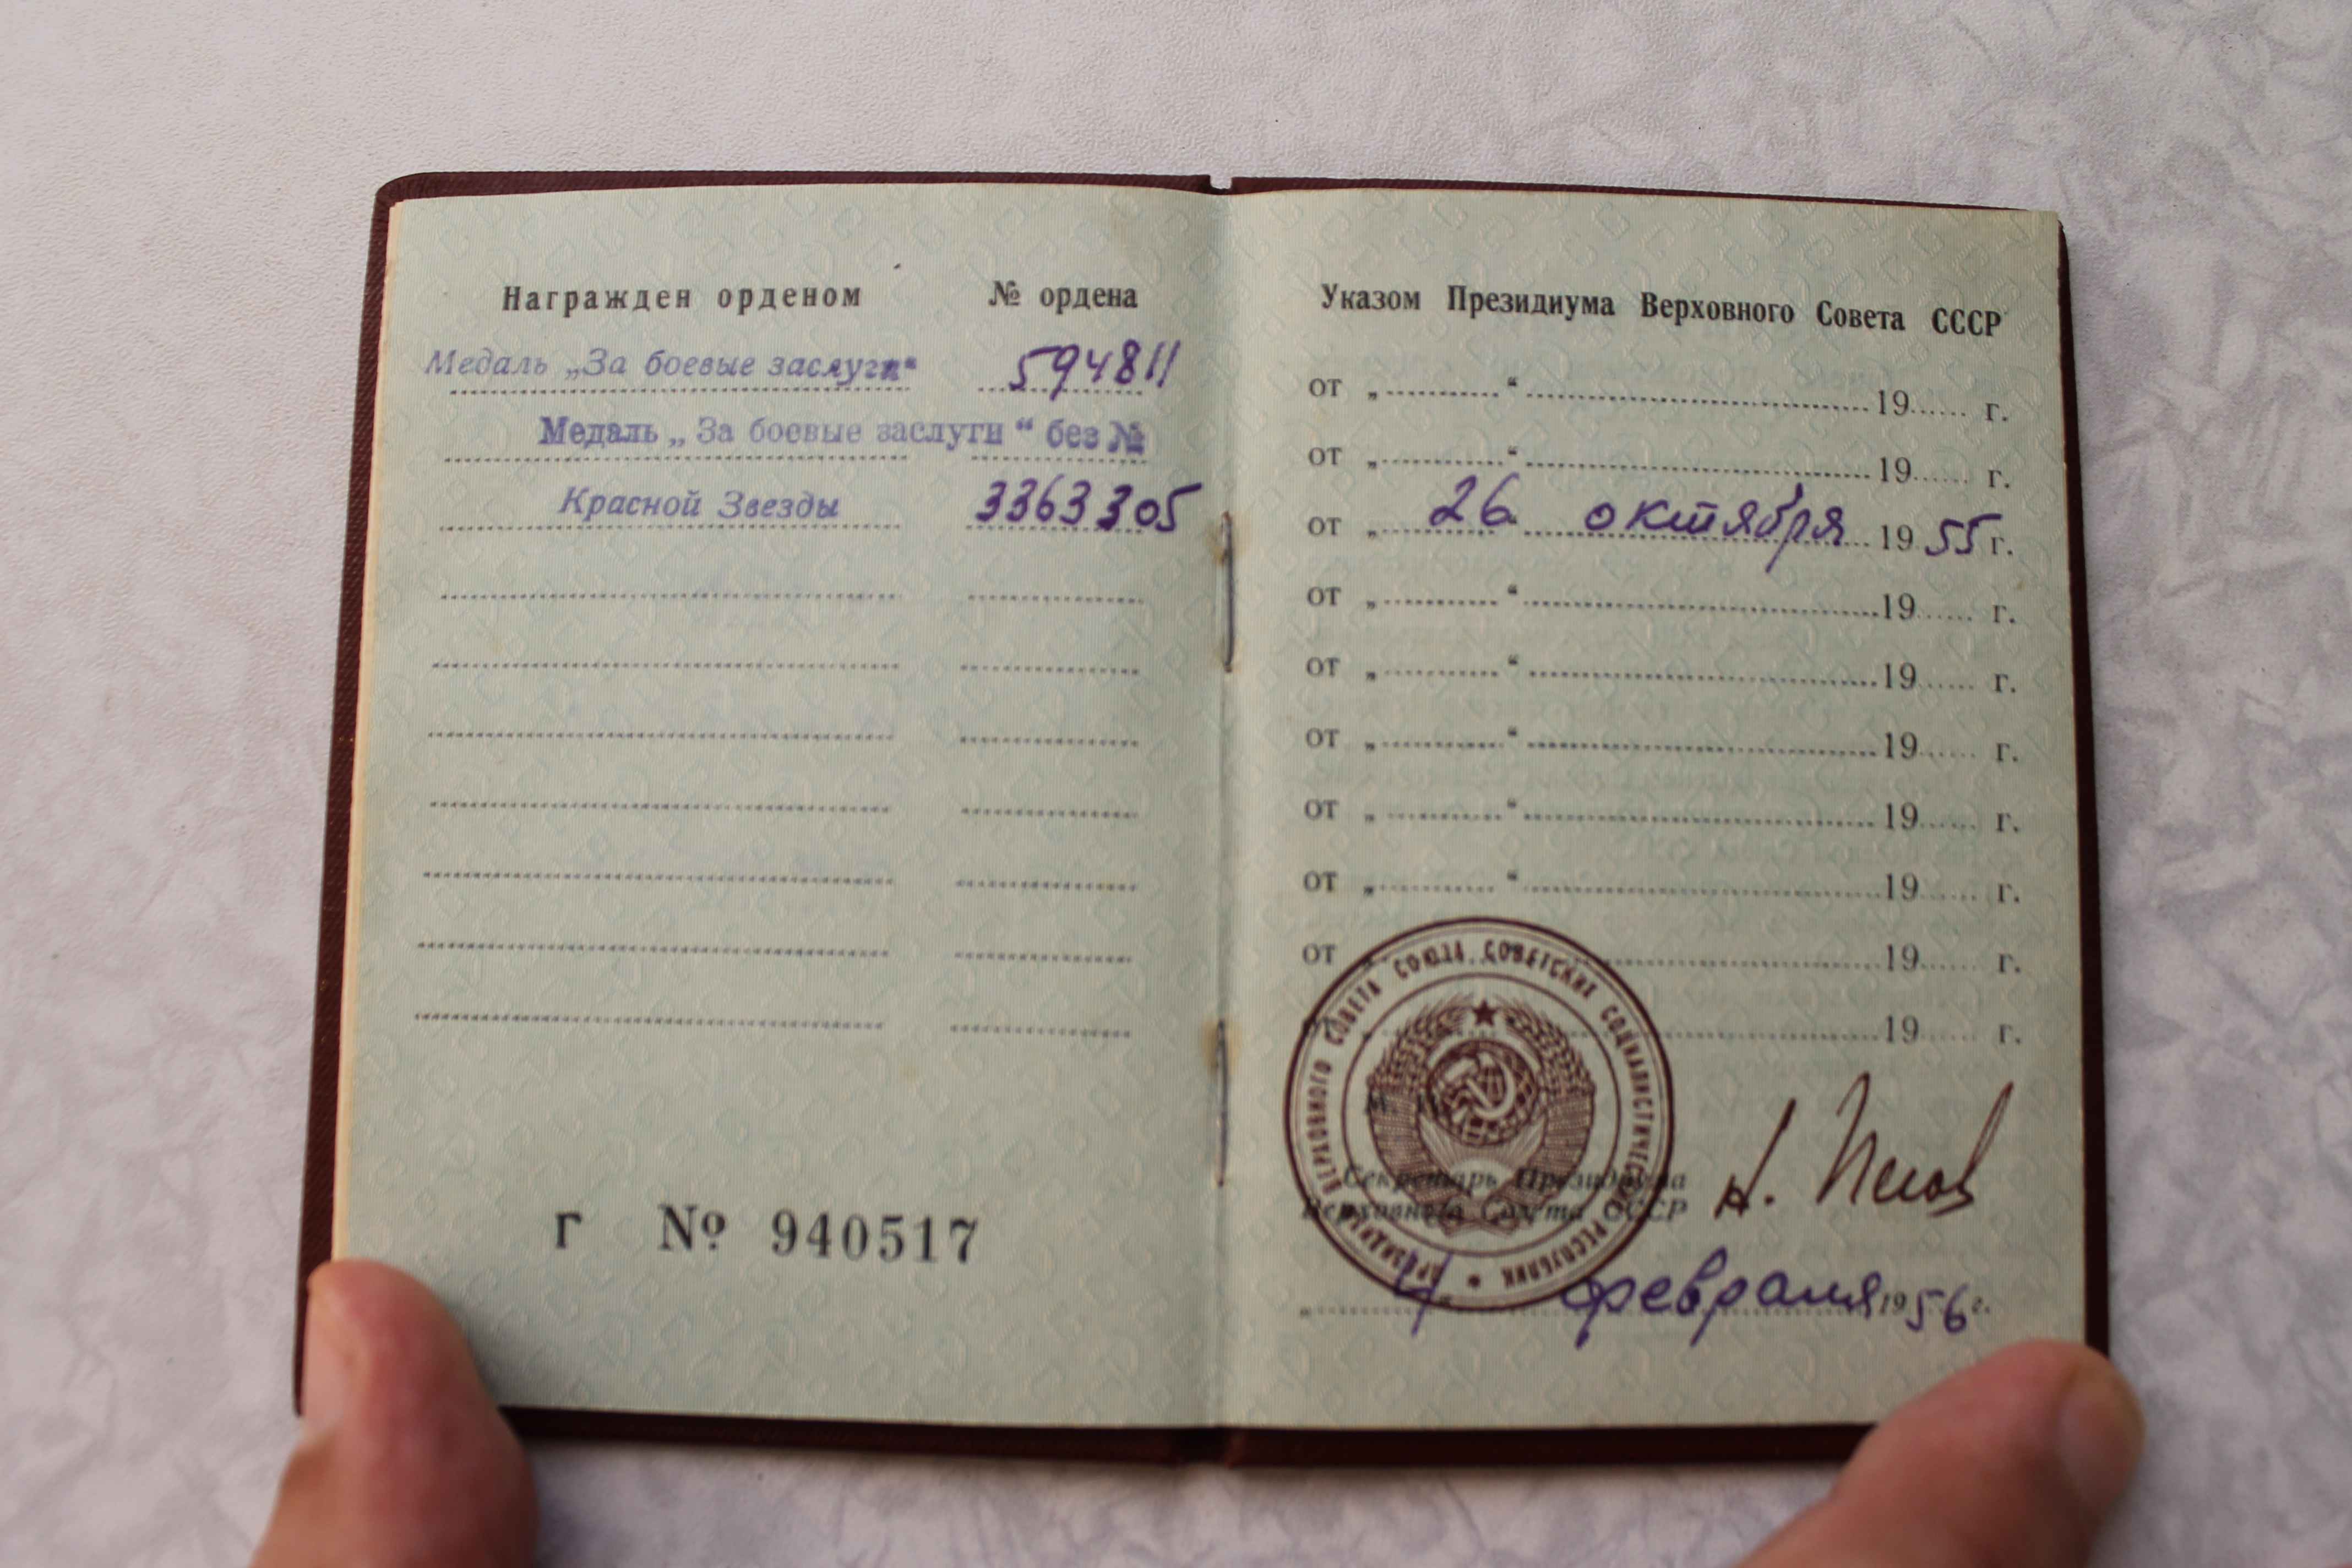 Награжден орденом № ордена
Медаль „За боевые заслуги“ 594811
Медаль „За боевые заслуги“ без №
Красной Звезды 3363305
г № 940517
Указом Президиума Верховного Совета СССР
от „ “ 19 г.
от „ “ 19 г.
от „ 26 октября 1955 г.
от „ “ 19 г.
от „ “ 19 г.
от „ “ 19 г.
от „ “ 19 г.
от „ “ 19 г.
от 19 г.
19 г.
ПРЕЗИДИУМ ВЕРХОВНОГО СОВЕТА СОЮЗА СОВЕТСКИХ СОЦИАЛИСТИЧЕСКИХ РЕСПУБЛИК
Секретарь Президиума
Верховного Совета СССР
Н. Пегов
„ 4 февраля 1956 г.